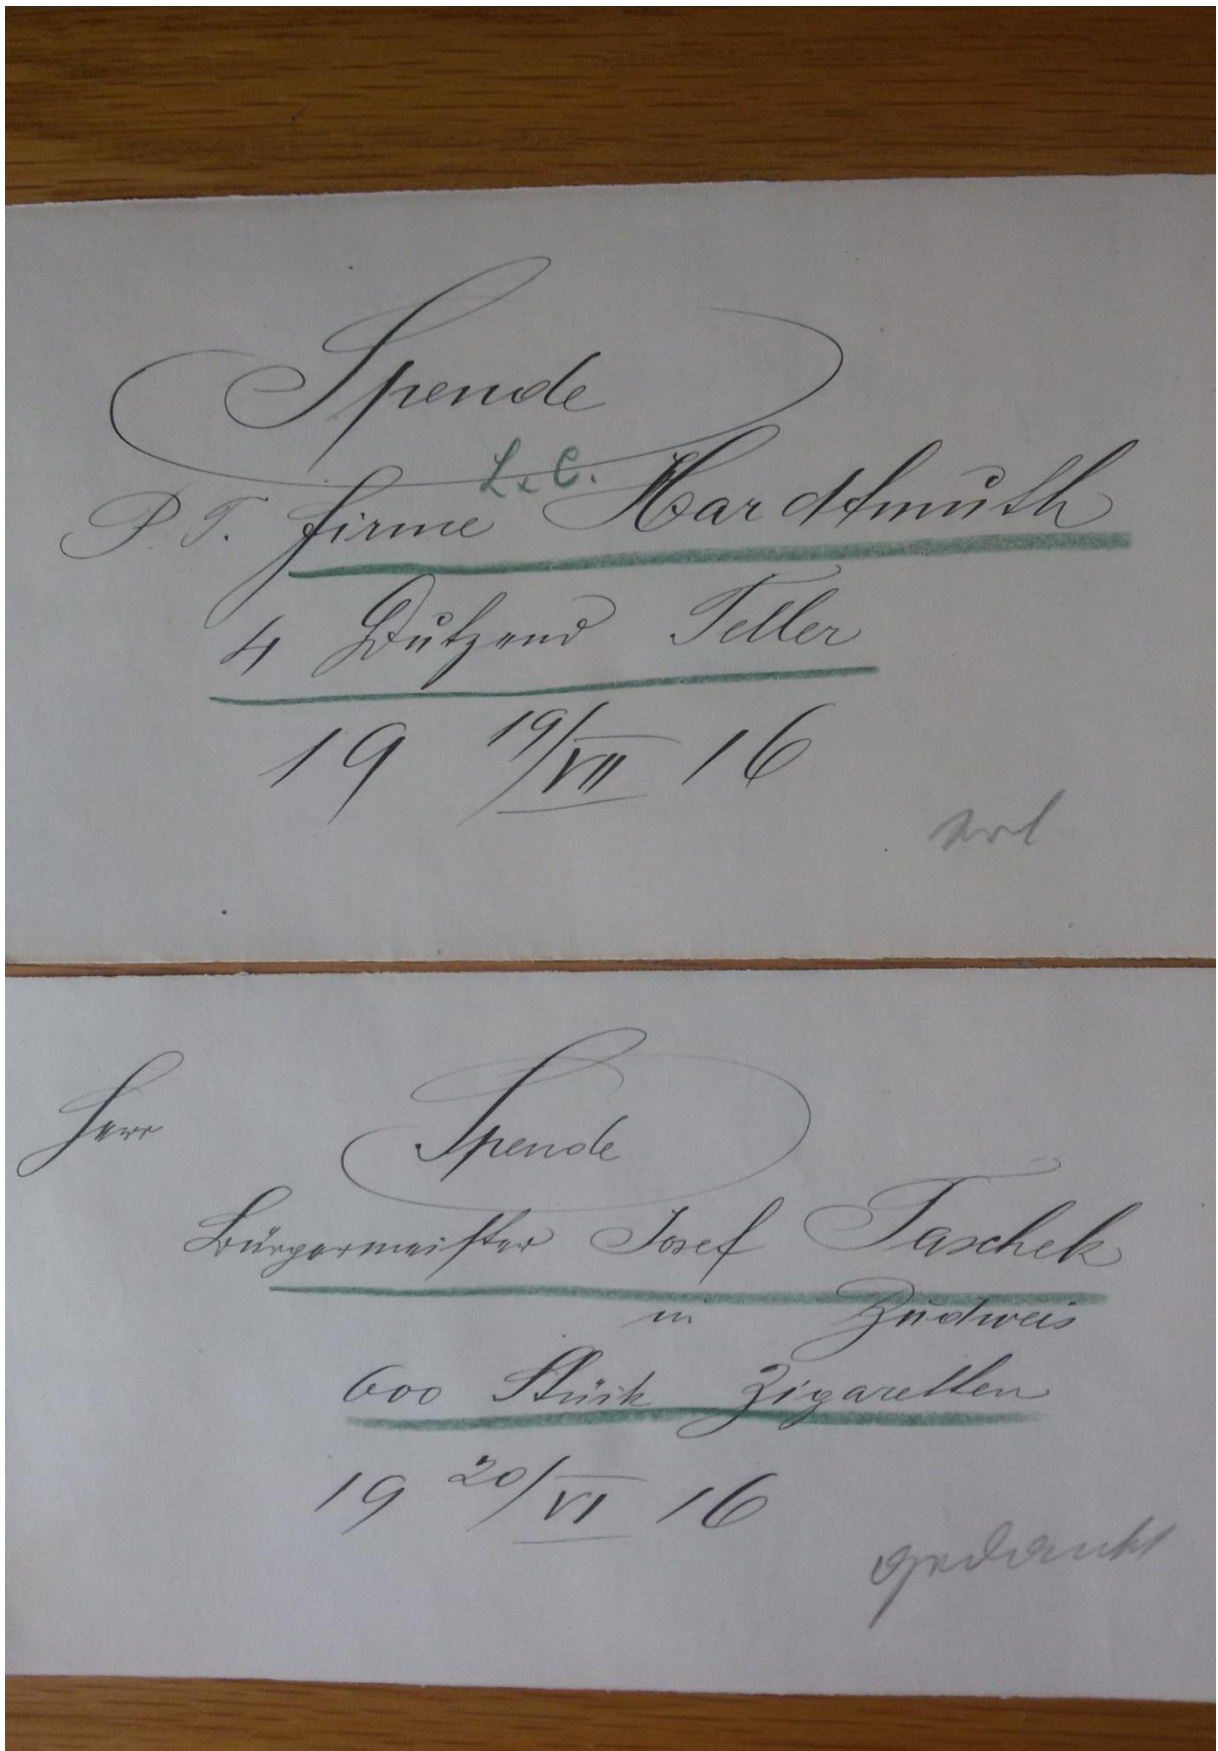 Spende
L. & C.
P. T. Firma Hardtmuth
4 Dutzend Teller
19 19/VII 16
erl
Spende
Herr
Bürgermeister Josef Taschek
in Budweis
600 Stück Zigaretten
19 20/VI 16
gedankt